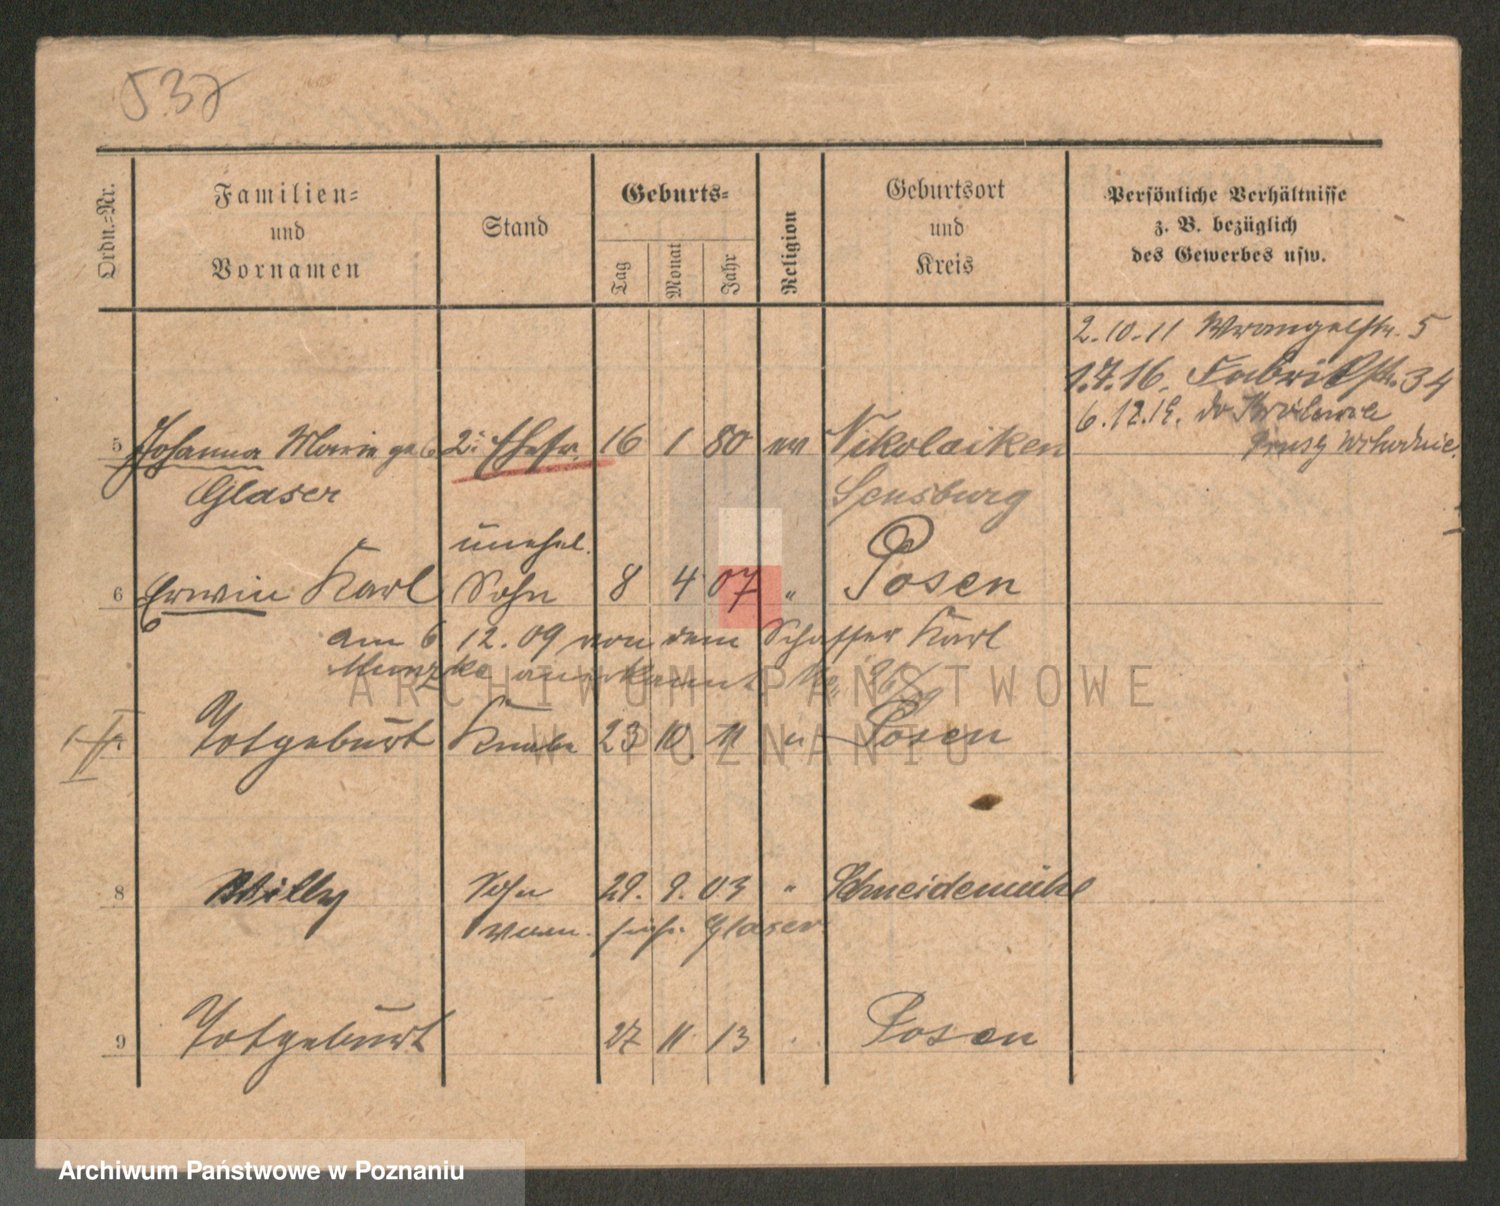 537
Ordn.-Nr.
Familien-
und
Vornamen
Stand
Geburts-
Tag
Monat
Jahr
Religion
Geburtsort
und
Kreis
Persönliche Verhältnisse
z. B. bezüglich
des Gewerbes usw.
2.10.11 Wrangelstr. 5
1.7.16. Fabrikstr. 34
6.12.19.
5 Johanna Marie geb 2. Ehefr. 16 1 80 ev Nikolaiken
Glaser Sensburg
unehel.
6 Erwin Karl Sohn 8 4 07 " Posen
am 6 12.09 von dem Schaffer Karl
anerkannt
Totgeburt Knabe 23 10. 11 " Posen
8 Willy Sohn 29. 9. 03 " Schneidemühl
Glaser
9 Totgeburt 27 11 13 Posen
ARCHIWUM PAŃSTWOWE
W POZNANIU
Archiwum Państwowe w Poznaniu